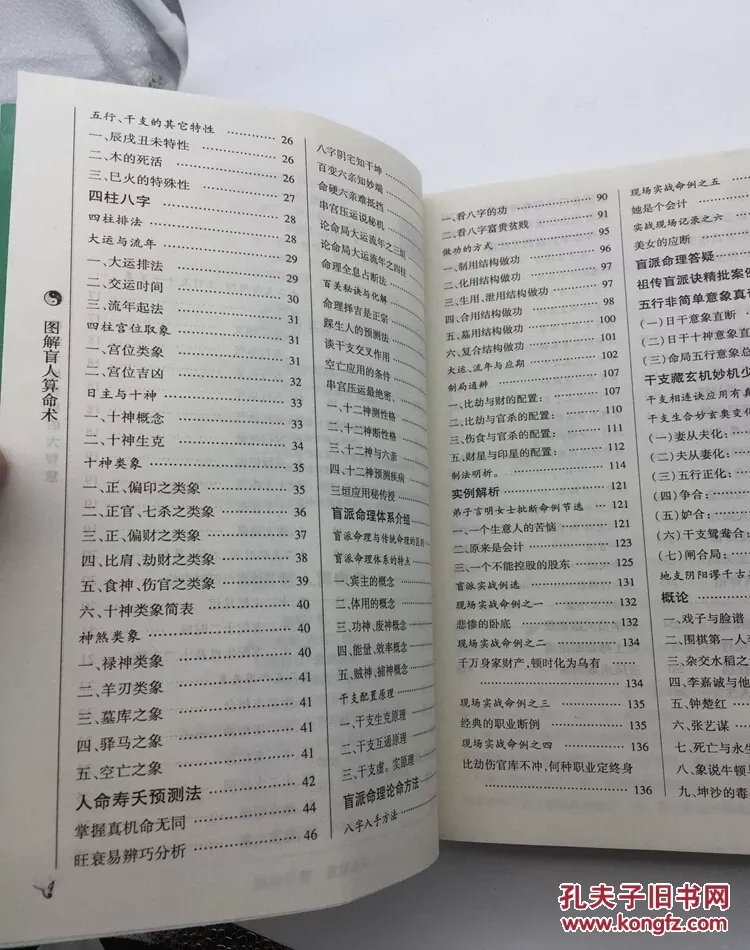 五行、干支的其它特性 ……… 26
一、辰戌丑未特性 ……… 26
二、木的死活 ……… 26
三、巳火的特殊性 ……… 27
四柱八字 ……… 28
四柱排法 ……… 28
大运与流年 ……… 29
一、大运排法 ……… 29
二、交运时间 ……… 30
三、流年起法 ……… 31
四柱宫位取象 ……… 31
一、宫位类象 ……… 31
二、宫位吉凶 ……… 32
日主与十神 ……… 33
一、十神概念 ……… 33
二、十神生克 ……… 34
十神类象 ……… 35
一、正、偏印之类象 ……… 35
二、正官、七杀之类象 ……… 36
三、正、偏财之类象 ……… 37
四、比肩、劫财之类象 ……… 38
五、食神、伤官之类象 ……… 39
六、十神类象简表 ……… 40
神煞类象 ……… 40
一、禄神类象 ……… 40
二、羊刃类象 ……… 41
三、墓库之象 ……… 41
四、驿马之象 ……… 41
五、空亡之象 ……… 41
人命寿夭预测法 ……… 42
掌握真机命无同 ……… 44
旺衰易辨巧分析 ……… 46
图解盲人算命术
八字阴宅知干坤
百变六亲知妙端
命硬六亲难抵挡
串宫压运说秘机
论命局大运流年之三垣
论命局大运流年之四柱
命理全息占断法
百关秘诀与化解
命理择吉是正宗
踩生人的预测法
谈干支交叉作用
空亡应用的条件
串宫压运最绝密、
一、十二神测性格
二、十二神断性格
三、十二神与六亲
四、十二神预测疾病
三垣应用秘传授
盲派命理体系介绍
盲派命理与传统命理的区别
盲派命理体系的特点
一、宾主的概念
二、体用的概念
三、功神、废神概念
四、能量、效率概念
五、贼神、捕神概念
干支配置原理
一、干支生克原理
二、干支互通原理
三、干支虚、实原理
盲派命理论命方法
八字入手方法
一、看八字的功 ……… 90
二、看八字富贵贫贱 ……… 91
做功的方式 ……… 95
一、制用结构做功 ……… 96
二、化用结构做功 ……… 97
三、生用、泄用结构做功 ……… 97
四、合用结构做功 ……… 98
五、墓用结构做功 ……… 100
六、复合结构做功 ……… 101
大运、流年与应期 ……… 102
制局通辨 ……… 107
一、比劫与财的配置: ……… 107
二、比劫与官杀的配置: ……… 110
三、伤食与官杀的配置: ……… 111
五、财星与印星的配置: ……… 112
制法明析。 ……… 114
实例解析 ……… 121
弟子言明女士批断命例节选 ……… 121
一、一个生意人的苦恼 ……… 121
二、原来是会计 ……… 123
三、一个不能控股的股东 ……… 125
盲派实战例选 ……… 131
现场实战命例之一 ……… 132
悲惨的卧底 ……… 132
现场实战命例之二 ……… 134
千万身家财产，顿时化为乌有 ……
……… 134
现场实战命例之三 ……… 135
经典的职业断例 ……… 135
现场实战命例之四 ……… 136
比劫伤官库不冲，何种职业定终身
……… 136
现场实战命例之五
她是个会计
实战现场记录之六
美女的应断
盲派命理答疑
祖传盲派诀精批案例
五行非简单意象真
(一)日干意象直断
(二)日干十神意象直
(三)命局五行意象总
干支藏玄机妙机少
干支相连诀应用有真
干支生合妙玄奥变
(一)妻从夫化:
(二)夫从妻化:
(三)五行正化:
(四)争合:
(五)妒合:
(六)干支鸳鸯合:
(七)闸合局:
地支阴阳谬千古
概论
一、戏子与脸谱
二、围棋第一人
三、杂交水稻之
四、李嘉诚与他
五、钟楚红
六、张艺谋
七、死亡与永生
八、象说牛顿与
九、坤沙的毒
孔夫子旧书网
www.kongfz.com